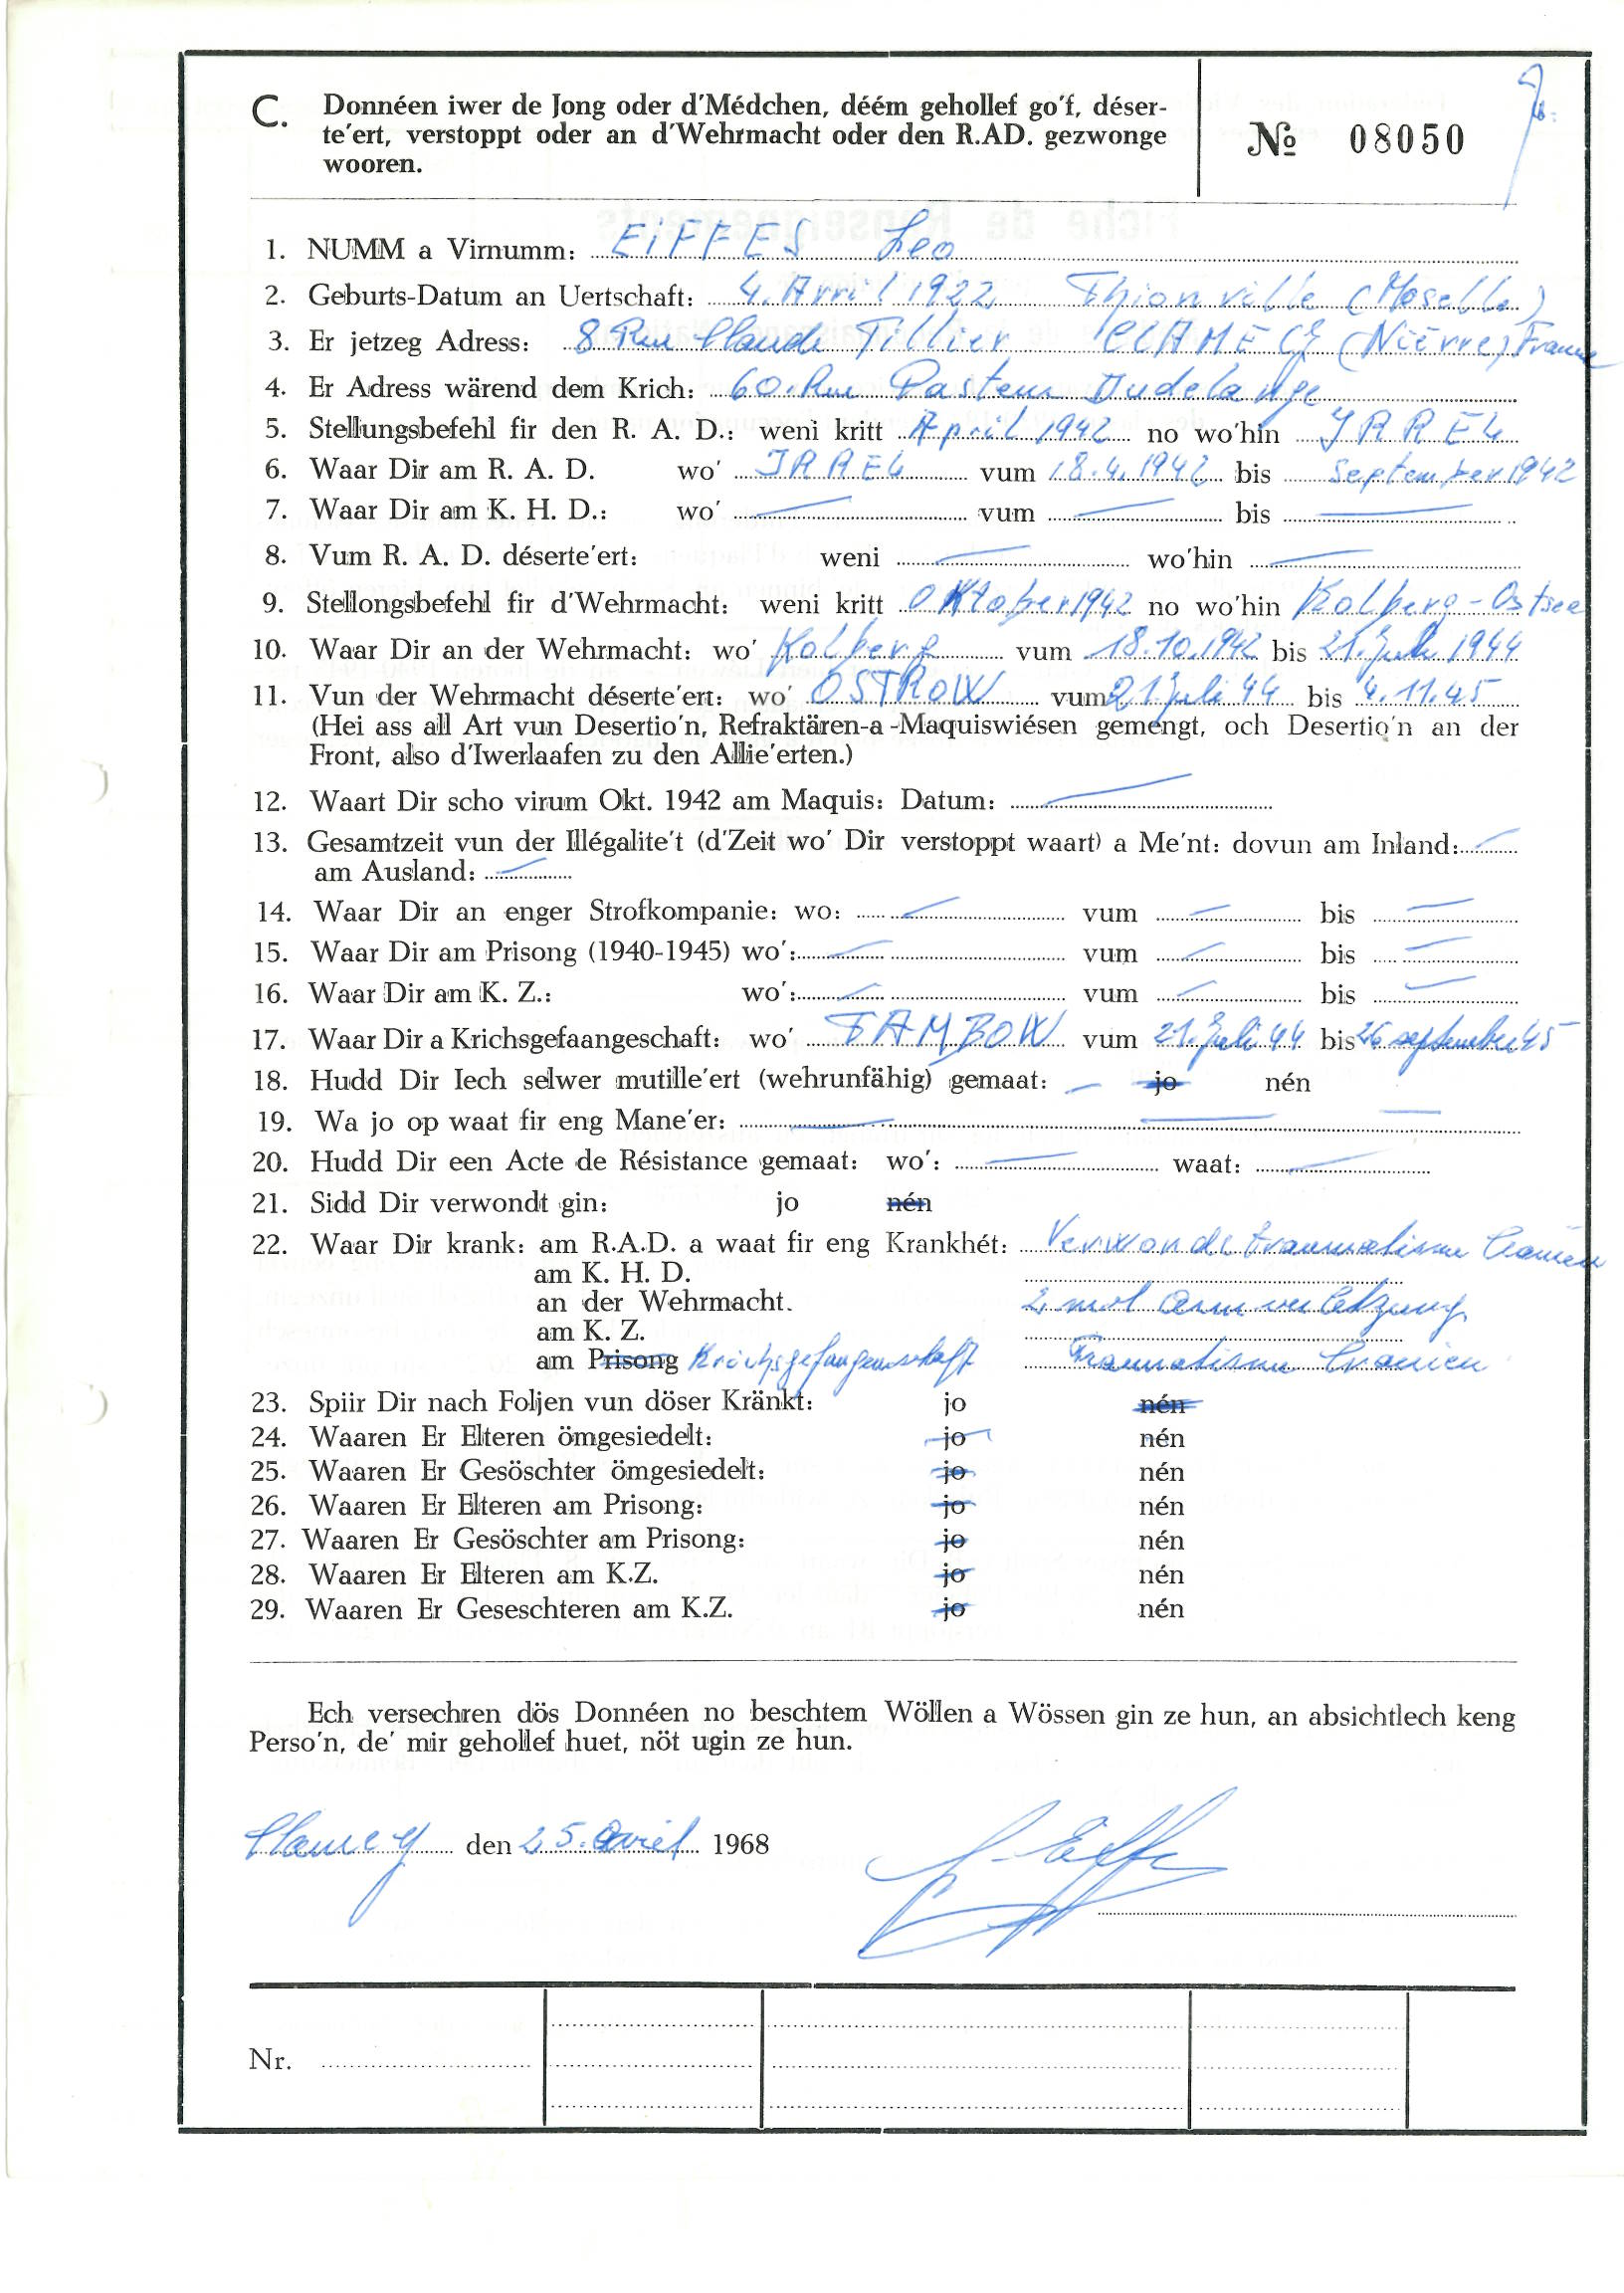 C. Donnéen iwer de Jong oder d'Médchen, déém gehollef go'f, déser-
te'ert, verstoppt oder an d'Wehrmacht oder den R.AD. gezwonge
wooren.
№ 08050
1. NUMM a Virnumm: EIFFES Leo
2. Geburts-Datum an Uertschaft: 4. Avril 1922 Thionville (Moselle)
3. Er jetzeg Adress: 8 Rue Claude Tillier CLAMECY (Nièvre) France
4. Er Adress wärend dem Krich: 60. Rue Pasteur Dudelange
5. Stellungsbefehl fir den R. A. D.: weni kritt April 1942 no wo'hin IRREL
6. Waar Dir am R. A. D. wo' IRREL vum 18.4.1942 bis September 1942
7. Waar Dir am K. H. D.: wo' — vum — bis —
8. Vum R. A. D. déserte'ert: weni — wo'hin —
9. Stellongsbefehl fir d'Wehrmacht: weni kritt Oktober 1942 no wo'hin Kolberg-Ostsee
10. Waar Dir an der Wehrmacht: wo' Kolberg vum 18.10.1942 bis 21. Juli 1944
11. Vun der Wehrmacht déserte'ert: wo' OSTROW vum 21 Juli 44 bis 4.11.45
(Hei ass all Art vun Desertio'n, Refraktären-a-Maquiswiésen gemengt, och Desertio'n an der
Front, also d'Iwerlaafen zu den Allie'erten.)
12. Waart Dir scho virum Okt. 1942 am Maquis: Datum: —
13. Gesamtzeit vun der Illégalite't (d'Zeit wo' Dir verstoppt waart) a Me'nt: dovun am Inland: —
am Ausland: —
14. Waar Dir an enger Strofkompanie: wo: — vum — bis —
15. Waar Dir am Prisong (1940-1945) wo': — vum — bis —
16. Waar Dir am K. Z.: wo': — vum — bis —
17. Waar Dir a Krichsgefaangeschaft: wo' TAMBOW vum 21. Juli 44 bis 26 september 45
18. Hudd Dir Iech selwer mutille'ert (wehrunfähig) gemaat: — jo nén
19. Wa jo op waat fir eng Mane'er: — — —
20. Hudd Dir een Acte de Résistance gemaat: wo': — waat: —
21. Sidd Dir verwondt gin: jo nén
22. Waar Dir krank: am R.A.D. a waat fir eng Krankhét: Verwondt traumatisme Cranien
am K. H. D.
an der Wehrmacht. 2 mol Armverletzung
am K. Z.
am Prisong Krichsgefangenschaft Traumatisme Cranien
23. Spiir Dir nach Foljen vun döser Kränkt: jo nén
24. Waaren Er Elteren ömgesiedelt: jo nén
25. Waaren Er Gesöschter ömgesiedelt: jo nén
26. Waaren Er Elteren am Prisong: jo nén
27. Waaren Er Gesöschter am Prisong: jo nén
28. Waaren Er Elteren am K.Z. jo nén
29. Waaren Er Geseschteren am K.Z. jo nén
Ech versechren dös Donnéen no beschtem Wöllen a Wössen gin ze hun, an absichtlech keng
Perso'n, de' mir gehollef huet, nöt ugin ze hun.
Clamecy den 25. Avril 1968
Nr.